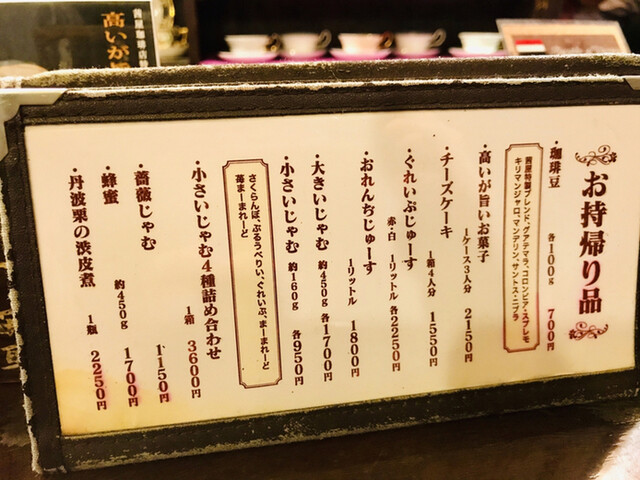 お持帰り品
・珈琲豆 各100g 700円
茜屋特製ブレンド、グアテマラ、コロンビア・スプレモ
キリマンジャロ、マンデリン、サントス・ニブラ
・高いが旨いお菓子 1ケース3人分 2150円
・チーズケーキ 1箱4人分 1550円
・ぐれいぷじゅーす 赤・白 1リットル 各2250円
・おれんぢじゅーす 1リットル 1800円
・大きいじゃむ 約450g 各1700円
・小さいじゃむ 約160g 各950円
さくらんぼ、ぶるうべりい、ぐれいぷ、まーまれーど
苺まーまれーど
・小さいじゃむ4種詰め合わせ 1箱 3600円
・薔薇じゃむ 1150円
・蜂蜜 約450g 1700円
・丹波栗の渋皮煮 1瓶 2250円
高いが